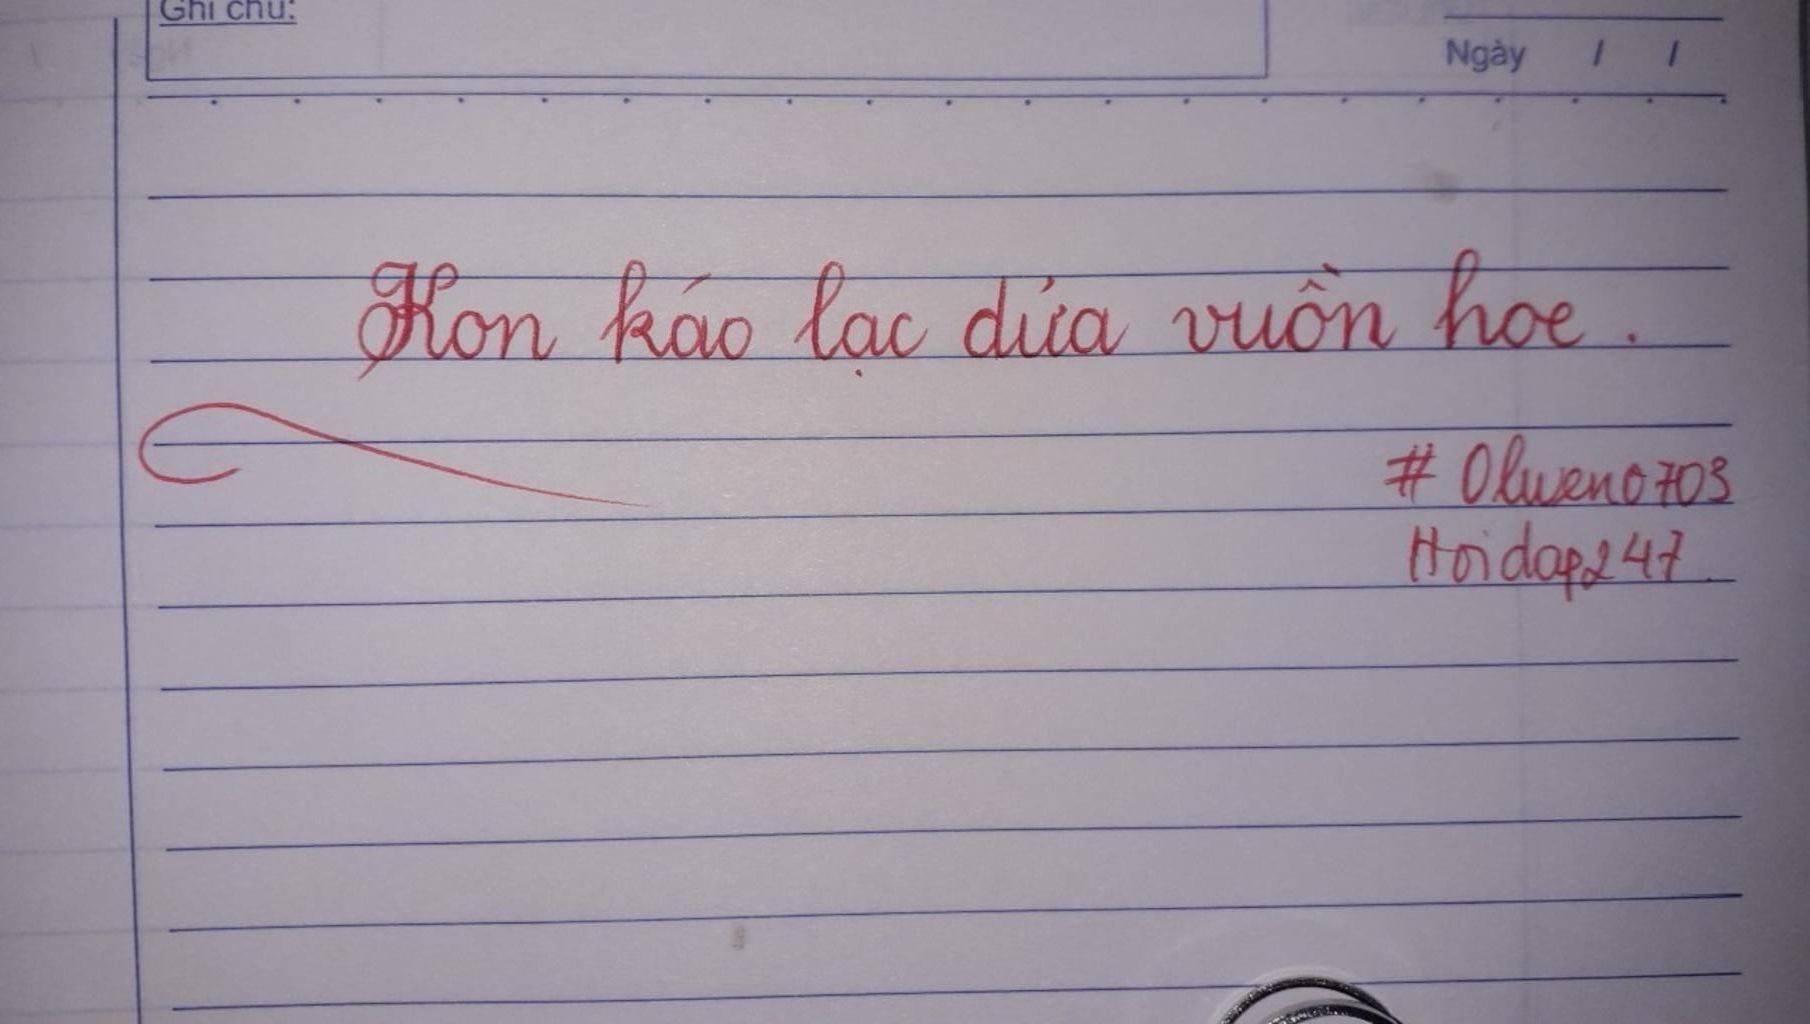 Ghi chú:
Ngày / /
Kon káo lạc dứa vuồn hoe.
# Olwen0703
Hoidap247